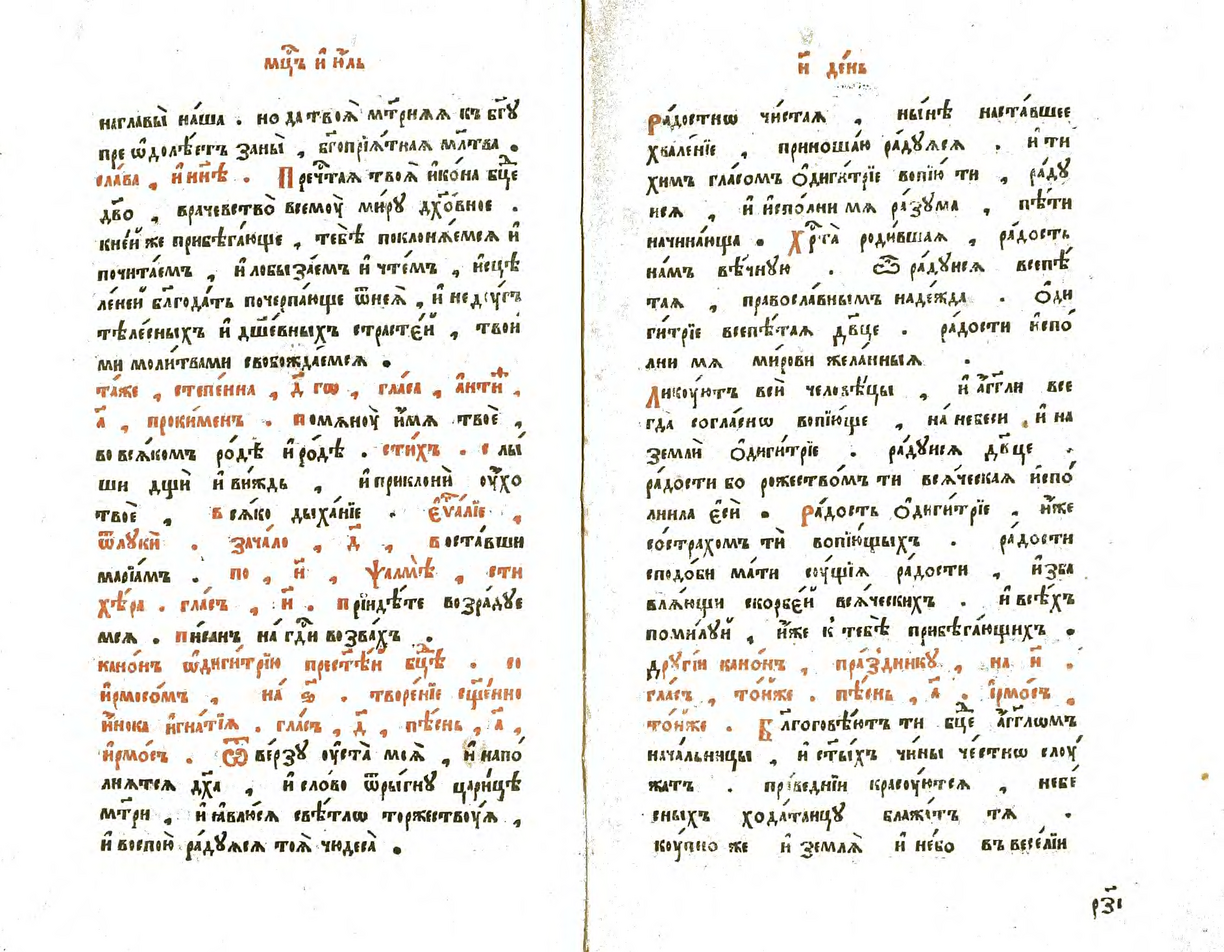 мц҃ъ и҆ ю҆ль
наглавы̀ на́ша . но да твоѧ̀ мт҃рнѧѧ къ бг҃ꙋ
пре ѡ҆долѣ́етъ заны̀ , бг҃опрїѧ́тнаѧ мл҃тва .
сла́ва , и҆ нн҃ѣ . Преч҃таѧ твоѧ̀ и҆ко́на бц҃е
дв҃о , врачевство̀ всемоу̀ ми́рꙋ дх҃о́вное .
кне́йже прибѣга́юще , тебѣ̀ поклонѧ́емсѧ и҆
почита́емъ , и҆ лобыза́емъ и҆ чте́мъ , и҆сцѣ
ле́ней бл҃года́ть почерпа́юще ѿнеѧ̀ , и҆ недꙋ́гъ
тѣле́сныхъ и҆ дш҃е́вныхъ страсте́й , твои́
ми моли́твами свобожда́емсѧ .
та́же , степе́нна , д҃ гѡ , гла́са , а҆нти ,
а҃ , проки́менъ . помѧноу̀ и҆́мѧ твоѐ ,
во всѧ́комъ ро́дѣ и҆ ро́дѣ . сти́хъ . слы́
ши дщѝ и҆ ви́ждь , и҆ приклонѝ оу҆́хо
твоѐ , всѧ́ко дыха́нїе . є҆ѵ҃а́лїе ,
ѿлꙋкѝ . зача́ло , д҃ , воста́вши
марїа́мъ . по , н҃ , ѱалмѣ̀ , сти
хѣ́ра . гла́съ , и҃ . прїидѣ́те возра́дꙋе
мсѧ . пи́санъ на́ гд҃и возва́хъ .
кано́нъ ѡ҆диги́трїю прест҃ѣ́й бц҃ѣ . со
и҆рмосо́мъ , на́ ѕ҃ . творе́нїе сщ҃е́нно
и҆́нока и҆гна́тїѧ . гла́съ , д҃ , пѣ́снь , а҃ ,
и҆рмо́съ . Ѿве́рзꙋ оу҆ста̀ моѧ̀ , и҆ напо́
лнѧтсѧ дх҃а , и҆ сло́во ѿры́гнꙋ цари́цѣ
мт҃ри , и҆ ꙗ҆влю́сѧ свѣ́тлѡ торжествоу́ѧ ,
и҆ воспою̀ ра́дꙋѧсѧ тоѧ̀ чюдеса̀ .
и҃ де́нь
Ра́достнѡ чи́стаѧ , ны́нѣ наста́вшее
хвале́нїе , приношаю ра́дꙋѧсѧ . и҆ ти
химъ гла́сомъ ѻ҆диги́трїе вопїю́ ти , ра́дꙋ
исѧ , и҆ и҆спо́лни мѧ ра́зꙋма , пѣ́ти
начина́юща . Хр҃та̀ роди́вшаѧ , ра́дость
на́мъ вѣ́чнꙋю . Ѽ ра́дꙋисѧ всепѣ́
таѧ , правосла́внымъ наде́жда . ѻ҆ди
ги́трїе всепѣ́таѧ дв҃це . ра́дости и҆спо́
лни мѧ ми́рови жела́нныѧ .
Ликоу́ютъ всѝ человѣ́цы , и҆ а҆́гг҃ли все
гда̀ согла́снѡ вопїю́ще , на́ небеси , и҆ на
землѝ ѻ҆диги́трїе . ра́дꙋисѧ дв҃це .
ра́дости бо рожество́мъ ти всѧ́ческаѧ и҆спо́
лнила є҆сѝ . Ра́дость ѻ҆диги́трїе , и҆́же
состра́хомъ тѝ вопїю́щыхъ . ра́дости
сподо́би ма́ти соу́щїѧ ра́дости , и҆зба
влѧ́ющи скорбе́й всѧ́ческихъ . и҆ всѣ́хъ
поми́лꙋй , и҆́же к̾ тебѣ̀ прибѣга́ющихъ .
дрꙋгі́й кано́нъ , пра́зднику , на и҃ .
гла́съ , то́йже . пѣ́снь , а҃ . і҆рмо́съ ,
то́йже . Блгоговѣ́ютъ ти бц҃е а҆́гг҃лѡмъ
нача́льницы , и҆ ст҃ы́хъ чи́ны че́стнѡ слоу́
жатъ . пра́веднїи красоу́ютсѧ , небе́
сныхъ хода́таицꙋ блажа́тъ тѧ .
коу́пно же и҆ землѧ̀ и҆ не́бо въ весе́лїи
рз҃і